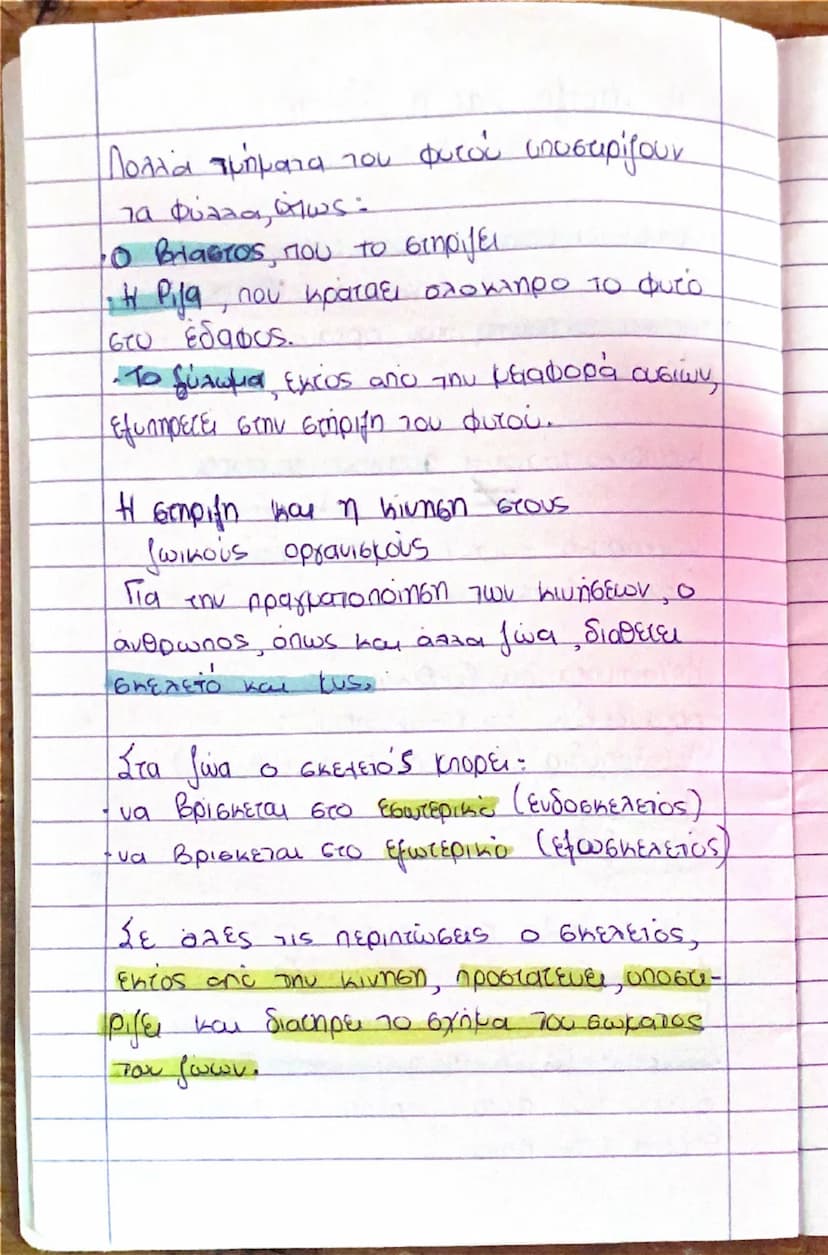 Πολλά τμήματα του φυτού υποστηρίζουν
τα φύλλα, όπως:
· Ο Βλαστος, που το στηρίζει
· Η Ριζα, που κραταει ολοκληρο το φυτό
στο έδαφος.
· Το ξύλωμα, εκτός από την μεταφορά ουσιών,
εξυπηρετει στην στήριξη του φυτού.
Η στηριξη και η κίνηση στους
ζωικούς οργανισμούς
Για την πραγματοποίηση των κινήσεων, ο
άνθρωπος, όπως και άλλα ζώα, διαθετει
σκελετό και μυς.
Στα ζώα ο σκελετός μπορεί:
· να βρίσκεται στο εσωτερικό (ενδοσκελετός)
· να βρισκεται στο εξωτερικό (εξωσκελετός)
Σε όλες τις περιπτώσεις ο σκελετός,
εκτός από την κινηση, προστατευει, υποστη-
ριζει και διατηρει το σχήμα του σωματος
των ζώων.